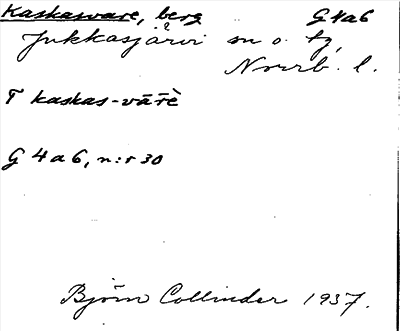 Kaskasvare, berg G4a6
Jukkasjärvi sn o. tg,
Norrb. l.
T kaskas-vāřè
G 4 a 6, n:r 30
Björn Collinder 1937.